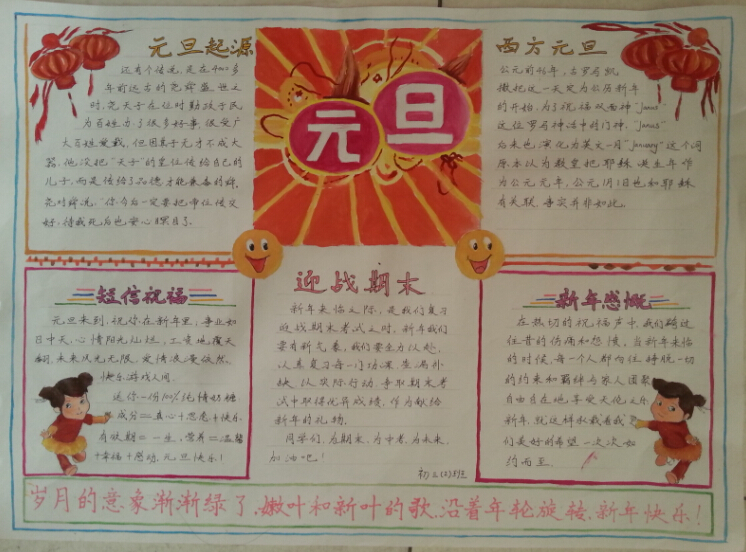 元旦起源
还有个传说，是在4000多
年前远古的尧舜盛世之
时，尧天子在位时勤政于民
为百姓办了很多好事，很受广
大百姓爱戴，但因其子无才不成大
器，他没把“天子”的皇位传给自己的
儿子，而是传给了品德才能兼备的舜，
尧对舜说：“你今后一定要把帝位传交
好，待我死后也安心瞑目了。
元旦
西方元旦
公元前46年，古罗马凯
撒把这一天定为公历新年
的开始，为了祝福双面神“Janus”
这位罗马神话中的门神，“Janus”
后来也演化为英文一月“January”这个词
原本认为教皇把耶稣诞生年作
为公元元年，公元1月1日也和耶稣
有关联，事实并非如此。
短信祝福
元旦来到，祝你在新年里，事业如
日中天，心情阳光灿烂，工资地覆天
翻，未来风光无限，爱情浪漫依然，
快乐游戏人间。
送你一份100%纯情奶糖
成分=真心+思念+快乐
有效期=一生，营养=温馨
+幸福+感动，元旦快乐！
迎战期末
新年来临之际，是我们复习
迎战期末考试之时，新年我们
要有新气象，我们要全力以赴，
认真复习每一门功课，查漏补
缺，以实际行动，争取期末考
试中取得优异成绩，作为献给
新年的礼物。
同学们，为期末，为中考，为未来，
加油吧！
初三(2)班
新年感慨
在热切的祝福声中，我们踏过
往昔的伤痛和怨恨，当新年来临
的时候，每一个人都向往挣脱一切
的约束和羁绊与家人团聚
自由自在地享受天伦之乐
新年，就这样承载着我
们美好的希望一次次如
约而至。
岁月的意象渐渐绿了，嫩叶和新叶的歌，沿着年轮旋转，新年快乐！